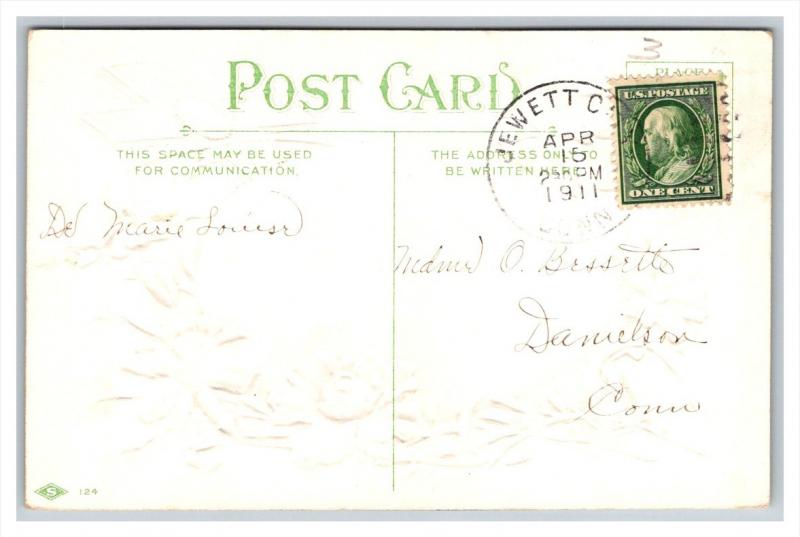 POST CARD
PLACE
JEWETT C
APR
15
PM
1911
CONN
U.S. POSTAGE
ONE CENT
THIS SPACE MAY BE USED
FOR COMMUNICATION.
THE ADDRESS ONLY TO
BE WRITTEN HERE.
De Marie Louise
O. Bessette
Danielson
Conn
124